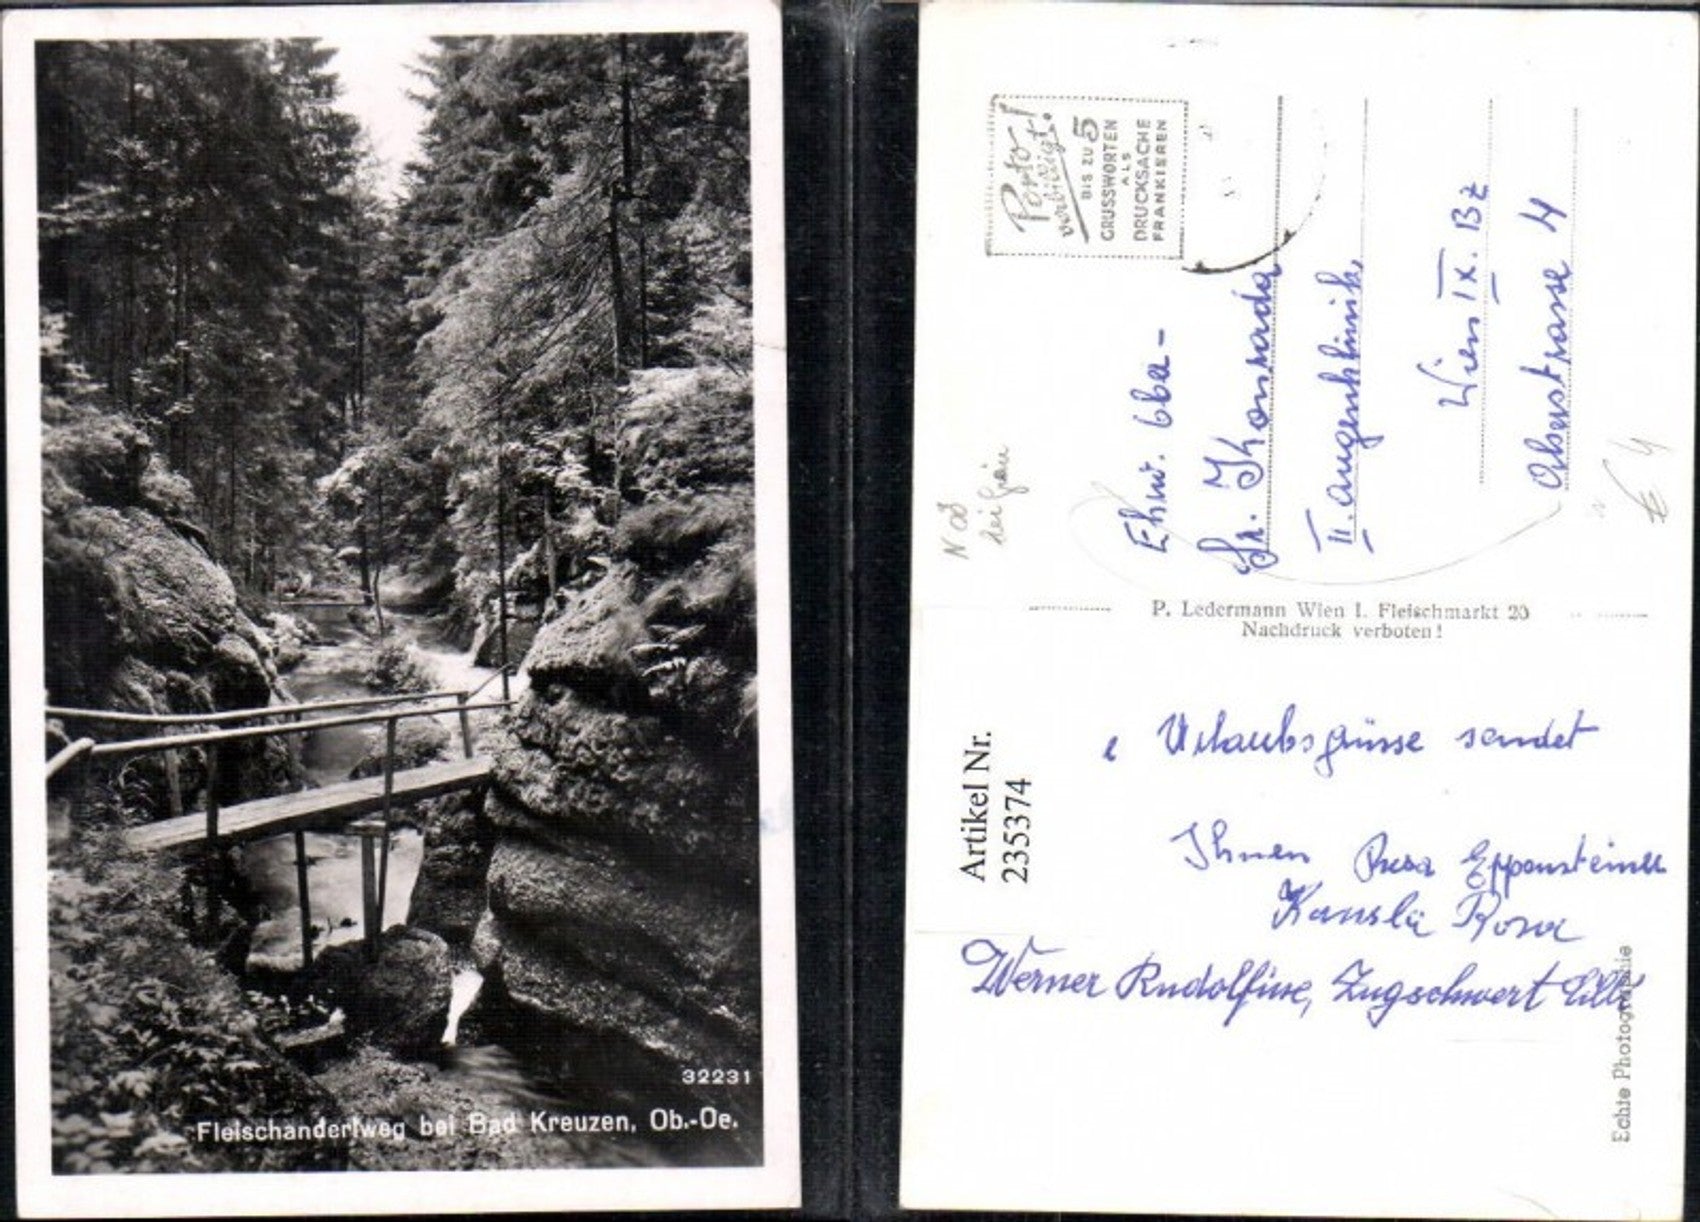 32231
Fleischanderlweg bei Bad Kreuzen, Ob.-Oe.
Porto
verbilligt!
BIS ZU 5
GRUSSWORTEN
ALS
DRUCKSACHE
FRANKIEREN
Sr. Konrada
II. Augenklinik
Wien IX. Bz
4
€ 4
P. Ledermann Wien I. Fleischmarkt 20
Nachdruck verboten!
Artikel Nr.
235374
Urlaubsgrüsse sendet
Ihnen Rosa Eppensteiner
Rosa
Werner Rudolfine, Zugschwert Lilli
Echte Photographie